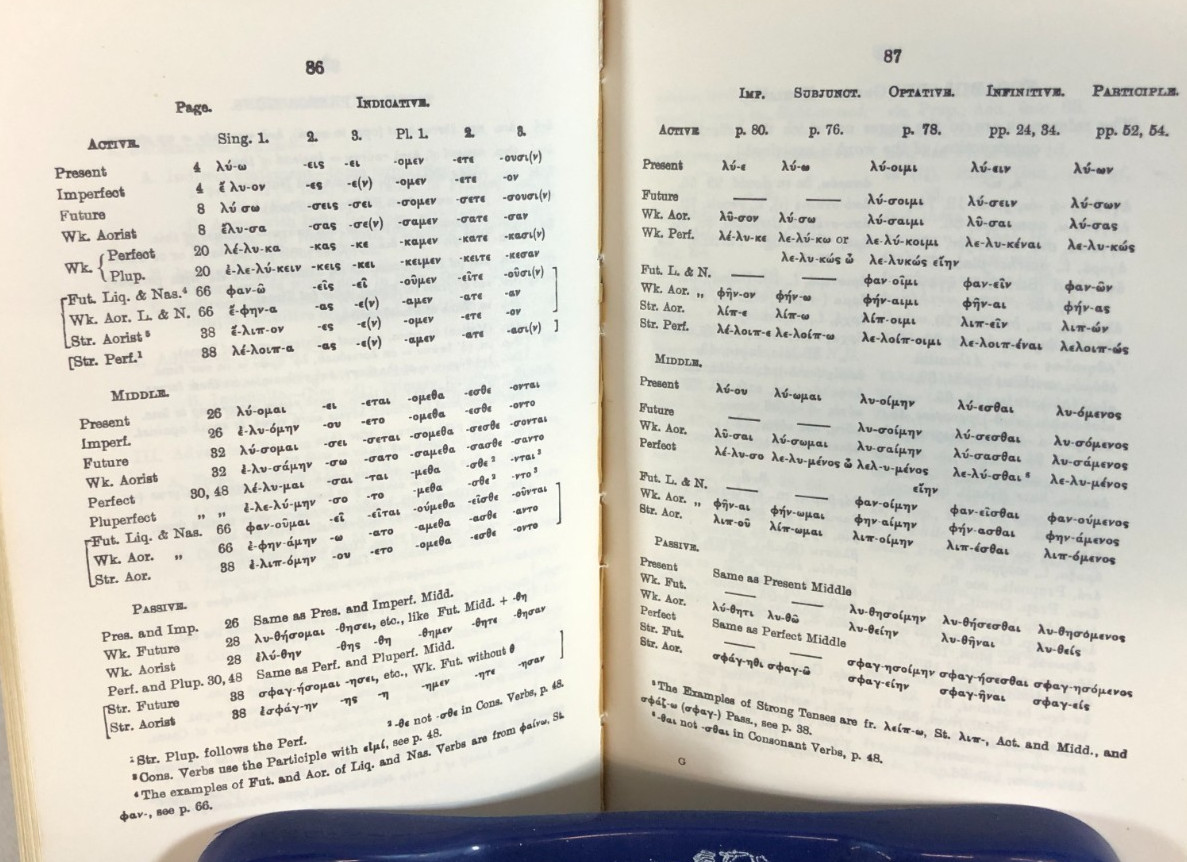 86
Page. INDICATIVE.
ACTIVE. Sing. 1. 2. 3. Pl. 1. 2. 3.
Present 4 λύ-ω -εις -ει -ομεν -ετε -ουσι(ν)
Imperfect 4 ἔ λυ-ον -ες -ε(ν) -ομεν -ετε -ον
Future 8 λύ σω -σεις -σει -σομεν -σετε -σουσι(ν)
Wk. Aorist 8 ἔλυ-σα -σας -σε(ν) -σαμεν -σατε -σαν
Wk. { Perfect 20 λέ-λυ-κα -κας -κε -καμεν -κατε -κασι(ν)
Plup. 20 ἐ-λε-λύ-κειν -κεις -κει -κειμεν -κειτε -κεσαν
[Fut. Liq. & Nas.⁴ 66 φαν-ῶ -εῖς -εῖ -οῦμεν -εῖτε -οῦσι(ν) ]
Wk. Aor. L. & N. 66 ἔ-φην-α -ας -ε(ν) -αμεν -ατε -αν
Str. Aorist⁵ 38 ἔ-λιπ-ον -ες -ε(ν) -ομεν -ετε -ον
[Str. Perf.¹ 38 λέ-λοιπ-α -ας -ε(ν) -αμεν -ατε -ασι(ν) ]
MIDDLE.
Present 26 λύ-ομαι -ει -εται -ομεθα -εσθε -ονται
Imperf. 26 ἐ-λυ-όμην -ου -ετο -ομεθα -εσθε -οντο
Future 32 λύ-σομαι -σει -σεται -σομεθα -σεσθε -σονται
Wk. Aorist 32 ἐ-λυ-σάμην -σω -σατο -σαμεθα -σασθε -σαντο
Perfect 30, 48 λέ-λυ-μαι -σαι -ται -μεθα -σθε² -νται³
Pluperfect „ „ ἐ-λε-λύ-μην -σο -το -μεθα -σθε² -ντο³
[Fut. Liq. & Nas. 66 φαν-οῦμαι -εῖ -εῖται -ούμεθα -εῖσθε -οῦνται ]
Wk. Aor. „ 66 ἐ-φην-άμην -ω -ατο -αμεθα -ασθε -αντο
Str. Aor. 38 ἐ-λιπ-όμην -ου -ετο -ομεθα -εσθε -οντο
PASSIVE.
Pres. and Imp. 26 Same as Pres. and Imperf. Midd.
Wk. Future 28 λυ-θήσομαι -θησει, etc., like Fut. Midd. + -θη
Wk. Aorist 28 ἐλύ-θην -θης -θη -θημεν -θητε -θησαν
Perf. and Plup. 30, 48 Same as Perf. and Pluperf. Midd.
[Str. Future 38 σφαγ-ήσομαι -ησει, etc., Wk. Fut. without θ ]
Str. Aorist 38 ἐσφάγ-ην -ης -η -ημεν -ητε -ησαν
¹ Str. Plup. follows the Perf. ² -θε not -σθε in Cons. Verbs, p. 48.
³ Cons. Verbs use the Participle with εἰμί, see p. 48.
⁴ The examples of Fut. and Aor. of Liq. and Nas. Verbs are from φαίνω, St.
φαν-, see p. 66.
87
IMP. SUBJUNCT. OPTATIVE. INFINITIVE. PARTICIPLE.
ACTIVE p. 80. p. 76. p. 78. pp. 24, 34. pp. 52, 54.
Present λύ-ε λύ-ω λύ-οιμι λύ-ειν λύ-ων
Future —— —— λύ-σοιμι λύ-σειν λύ-σων
Wk. Aor. λῦ-σον λύ-σω λύ-σαιμι λῦ-σαι λύ-σας
Wk. Perf. λέ-λυ-κε λε-λύ-κω or λε-λύ-κοιμι λε-λυ-κέναι λε-λυ-κώς
λε-λυ-κώς ὦ λε-λυκώς εἴην
Fut. L. & N. —— —— φαν-οῖμι φαν-εῖν φαν-ῶν
Wk. Aor. „ φῆν-ον φήν-ω φήν-αιμι φῆν-αι φήν-ας
Str. Aor. λίπ-ε λίπ-ω λίπ-οιμι λιπ-εῖν λιπ-ών
Str. Perf. λέ-λοιπ-ε λε-λοίπ-ω λε-λοίπ-οιμι λε-λοιπ-έναι λελοιπ-ώς
MIDDLE.
Present λύ-ου λύ-ωμαι λυ-οίμην λύ-εσθαι λυ-όμενος
Future —— —— λυ-σοίμην λύ-σεσθαι λυ-σόμενος
Wk. Aor. λῦ-σαι λύ-σωμαι λυ-σαίμην λύ-σασθαι λυ-σάμενος
Perfect λέ-λυ-σο λε-λυ-μένος ὦ λελ-υ-μένος λε-λύ-σθαι⁶ λε-λυ-μένος
εἴην
Fut. L. & N. —— —— φαν-οίμην φαν-εῖσθαι φαν-ούμενος
Wk. Aor. „ φῆν-αι φήν-ωμαι φην-αίμην φήν-ασθαι φην-άμενος
Str. Aor. λιπ-οῦ λίπ-ωμαι λιπ-οίμην λιπ-έσθαι λιπ-όμενος
PASSIVE.
Present Same as Present Middle
Wk. Fut. —— —— λυ-θησοίμην λυ-θήσεσθαι λυ-θησόμενος
Wk. Aor. λύ-θητι λυ-θῶ λυ-θείην λυ-θῆναι λυ-θείς
Perfect Same as Perfect Middle
Str. Fut. —— —— σφαγ-ησοίμην σφαγ-ήσεσθαι σφαγ-ησόμενος
Str. Aor. σφάγ-ηθι σφαγ-ῶ σφαγ-είην σφαγ-ῆναι σφαγ-είς
⁵ The Examples of Strong Tenses are fr. λείπ-ω, St. λιπ-, Act. and Midd., and
σφάζ-ω (σφαγ-) Pass., see p. 38.
⁶ -θαι not -σθαι in Consonant Verbs, p. 48.
G